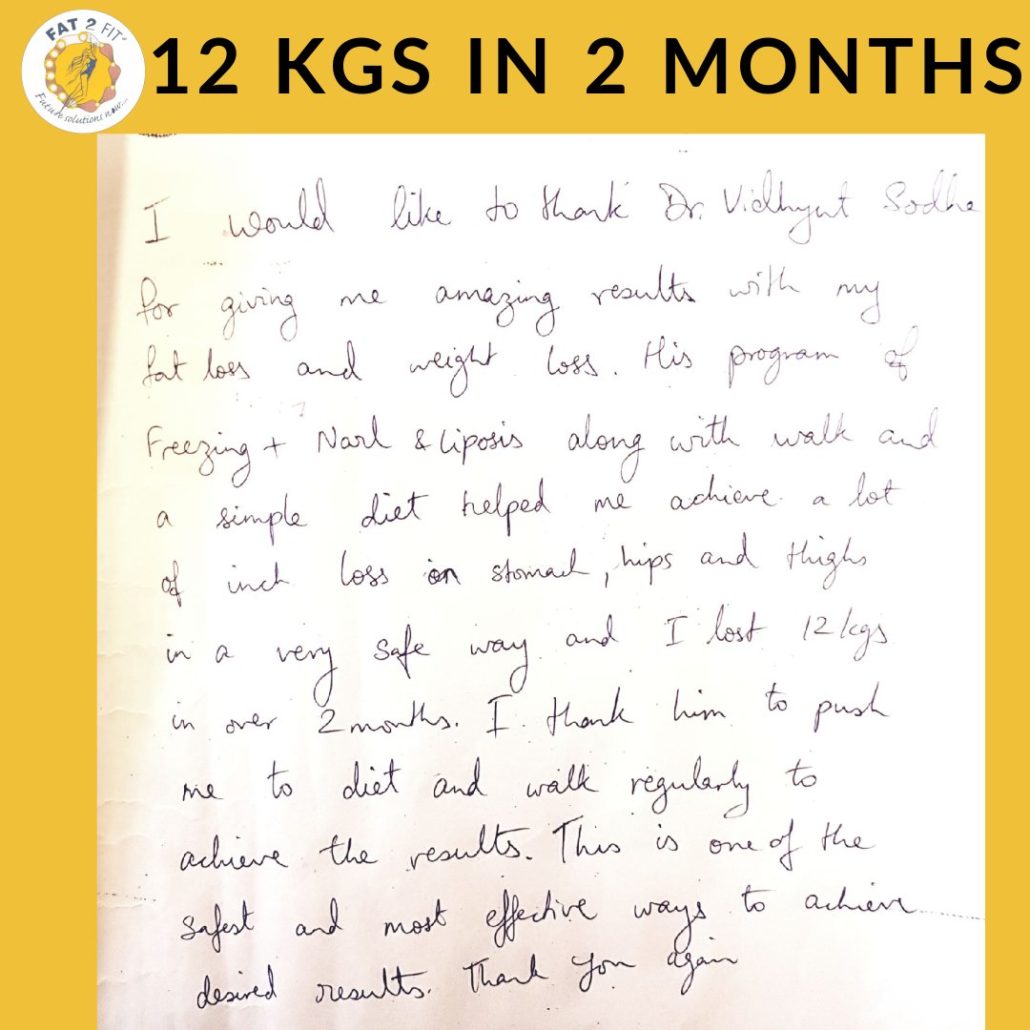 FAT 2 FIT
Future solutions now...
12 KGS IN 2 MONTHS
I would like to thank Dr. Vidhyut Sodha
for giving me amazing results with my
fat loss and weight loss. His program of
Freezing + Narl & Liposis along with walk and
a simple diet helped me achieve a lot
of inch loss on stomach, hips and thighs
in a very safe way and I lost 12 kgs
in over 2 months. I thank him to push
me to diet and walk regularly to
achieve the results. This is one of the
safest and most effective ways to achieve
desired results. Thank you again